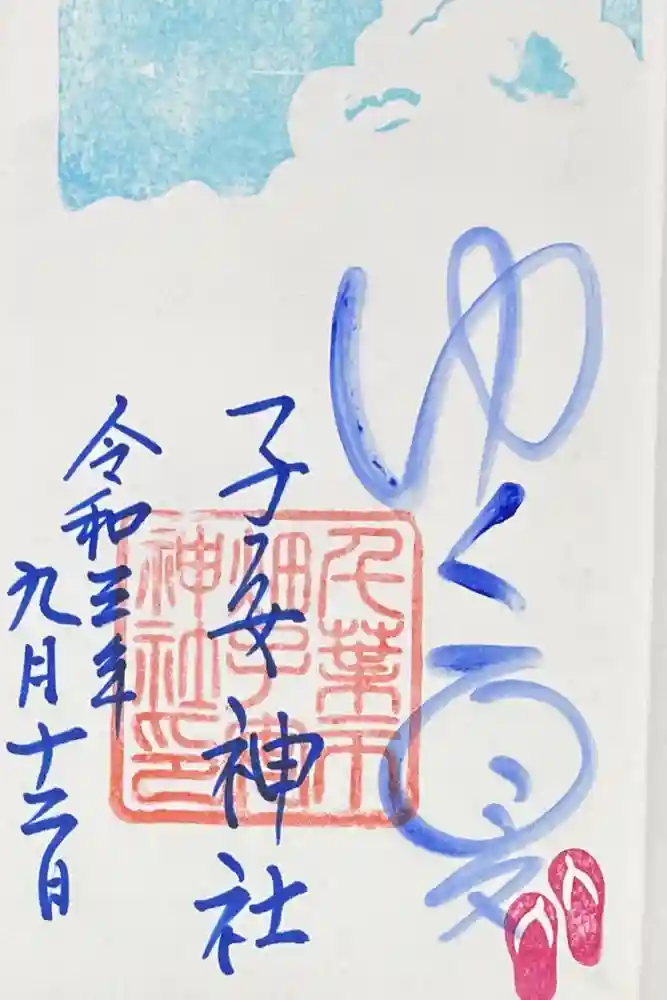 ゆく夏
千葉市
畑子安
神社印
子安神社
令和三年
九月十二日